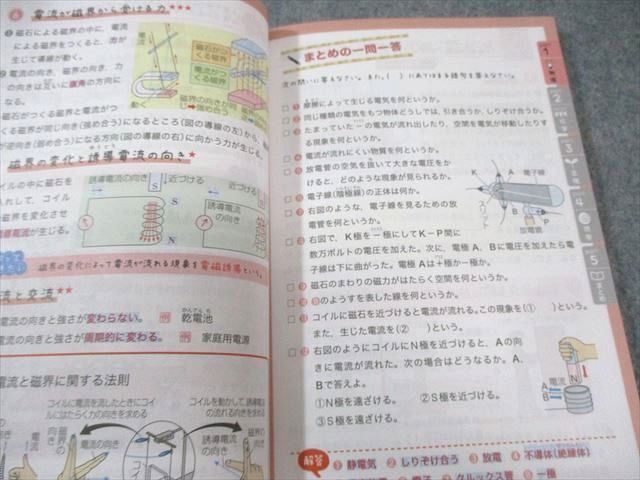 6 電流が磁界から受ける力★★★
磁石による磁界の中に、電流
による磁界をつくると、力が
生じて導線が動く。
電流の向き、磁界の向き、力
の向きは互いに直角の方向に
なる。
磁石がつくる磁界と電流がつ
くる磁界が同じ向き(強め合う)になるところ(図の導線の左)から、
が逆向き(弱め合う)になる方向(図の導線の右)に向かう力が生じる。
電流
動く
磁石がつくる磁界
電流がつくる磁界
磁界の向きが同
磁界の変化と誘導電流の向き★
イルの中に磁石を
入れして、コイル
磁界を変化させ
誘導電流が生じる。
誘導電流の向き
近づける
S
N
近づける
誘導電流の向き
磁界の変化によって電流が流れる現象を電磁誘導という。
流と交流★★
電流の向きと強さが変わらない。 例 乾電池
かんでんち
電流の向きと強さが周期的に変わる。 例 家庭用電源
電流と磁界に関する法則
コイルに電流を流したときにコイルにはたらく力の向きを求める
コイルを動かして、誘導電流の流れる向きを求める
電流の向き
誘導電流の向き
まとめの一問一答
次の問いに答えなさい。また、( )にあてはまる語句を答えなさい。
□ 1 摩擦によって生じる電気を何というか。
□ 2 同じ種類の電気をもつ物体どうしでは、引き合うか、しりぞけ合うか。
□ 3 たまっていた−の電気が流れ出したり、空間を電気が移動したりする現象を何というか。
□ 4 電流が流れにくい物質を何というか。
□ 5 放電管の空気を抜いて大きな電圧をかけると、どのような現象が見られるか。
□ 6 電子線(陰極線)の正体は何か。
□ 7 右図のような、電子線を見るための放電管を何というか。
□ 8 右図で、K極を−極にしてK−P間に数万ボルトの電圧を加えた。次に、電極A、Bに電圧を加えたら電子線は下に曲がった。電極Aは+極か−極か。
□ 9 磁石のまわりの磁力がはたらく空間を何というか。
□ 10 9のようすを表した線を何というか。
□ 11 コイルに磁石を近づけると電流が流れる。この現象を(① )という。また、生じた電流を(② )という。
□ 12 右図のようにコイルにN極を近づけると、Aの向きに電流が流れた。次の場合はどうなるか。A、Bで答えよ。
①N極を遠ざける。 ②S極を近づける。
③S極を遠ざける。
K
A
電子線
スリット
B
P
放電管
N
電流
A
B
解答 1 静電気 2 しりぞけ合う 3 放電 4 不導体(絶縁体)
7 クルックス管 8 −極
1
2
3
4
5 まとめ